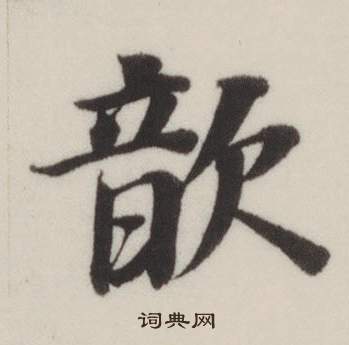 歆
词典网